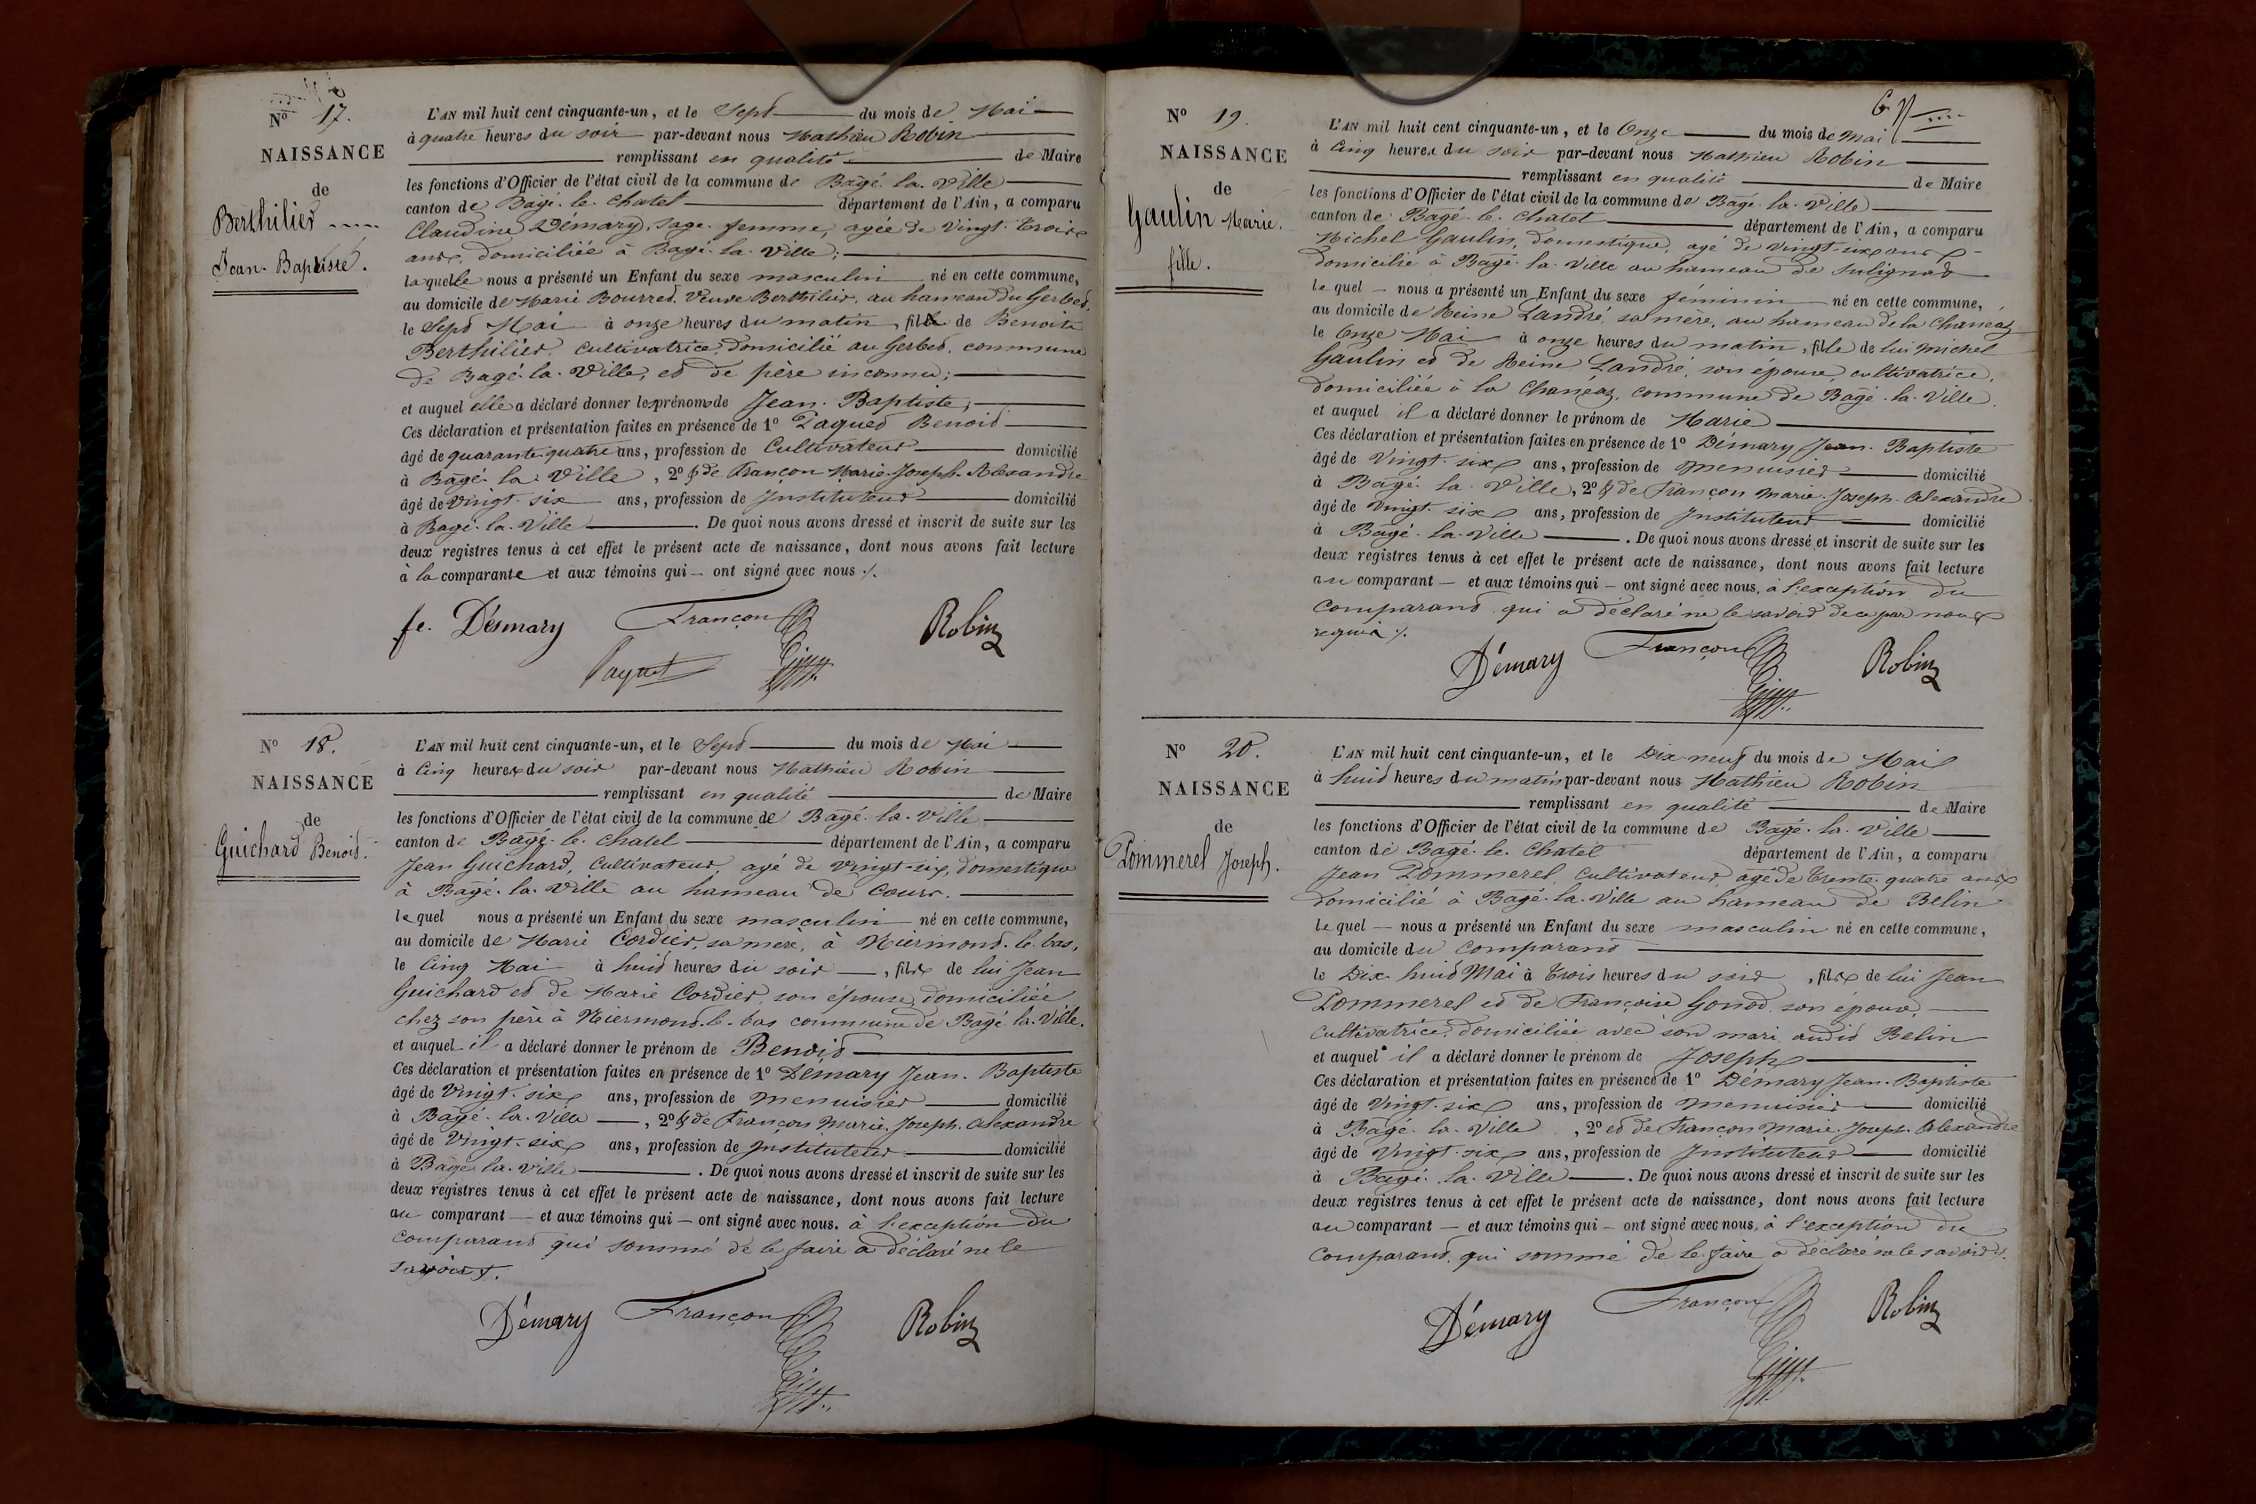 Nº 17.
NAISSANCE
de
Berthilier
Jean-Baptiste.
L'AN mil huit cent cinquante-un, et le Sept du mois de Mai
à quatre heures du soir par-devant nous Mathieu Robin
remplissant en qualité de Maire
les fonctions d'Officier de l'état civil de la commune de Bagé-la-Ville
canton de Bagé-le-Chatel département de l'Ain, a comparu
Claudine Démary, sage-femme, agée de vingt-trois
ans, domiciliée à Bagé-la-Ville;
laquelle nous a présenté un Enfant du sexe masculin né en cette commune,
au domicile de Marie Bourred Veuve Berthilier, au hameau du Gerbet,
le Sept Mai à onze heures du matin, fils de Benoite
Berthilier, cultivatrice, domicilié au Gerbet, commune
de Bagé-la-Ville, et de père inconnu;
et auquel elle a déclaré donner les prénoms de Jean-Baptiste;
Ces déclaration et présentation faites en présence de 1º Paquet Benoit
âgé de quarante-quatre ans, profession de Cultivateur domicilié
à Bagé-la-Ville, 2º & de Françon Marie-Joseph-Alexandre
âgé de vingt-six ans, profession de Instituteur domicilié
à Bagé-la-Ville. De quoi nous avons dressé et inscrit de suite sur les
deux registres tenus à cet effet le présent acte de naissance, dont nous avons fait lecture
à la comparante et aux témoins qui ont signé avec nous ./.
fe. Démary Françon Robin
Payuet
Nº 18.
NAISSANCE
de
Guichard Benoit.
L'AN mil huit cent cinquante-un, et le Sept du mois de Mai
à Cinq heures du soir par-devant nous Mathieu Robin
remplissant en qualité de Maire
les fonctions d'Officier de l'état civil de la commune de Bagé-la-Ville
canton de Bagé-le-Chatel département de l'Ain, a comparu
Jean Guichard, Cultivateur, agé de vingt-six, domestique
à Bagé-la-Ville au hameau de Cours.
lequel nous a présenté un Enfant du sexe masculin né en cette commune,
au domicile de Marie Cordier, sa mère, à Niermont-le-bas,
le Cinq Mai à huit heures du soir, fils de lui Jean
Guichard et de Marie Cordier, son épouse, domiciliée
chez son père à Niermont-le-bas commune de Bagé-la-Ville.
et auquel il a déclaré donner le prénom de Benoit
Ces déclaration et présentation faites en présence de 1º Démary Jean-Baptiste
âgé de vingt-six ans, profession de menuisier domicilié
à Bagé-la-Ville, 2º & de Françon Marie-Joseph-Alexandre
âgé de vingt-six ans, profession de Instituteur domicilié
à Bagé-la-Ville. De quoi nous avons dressé et inscrit de suite sur les
deux registres tenus à cet effet le présent acte de naissance, dont nous avons fait lecture
au comparant et aux témoins qui ont signé avec nous. à l'exception du
comparant qui sommé de le faire a déclaré ne le
savoir ./.
Démary Françon Robin
Nº 19.
NAISSANCE
de
Gaulin Marie.
fille.
L'AN mil huit cent cinquante-un, et le Onze du mois de Mai
à Cinq heures du soir par-devant nous Mathieu Robin
remplissant en qualité de Maire
les fonctions d'Officier de l'état civil de la commune de Bagé-la-Ville
canton de Bagé-le-Chatel département de l'Ain, a comparu
Michel Gaulin, domestique, agé de vingt-six ans
domicilié à Bagé-la-Ville au hameau de Sulignat
lequel nous a présenté un Enfant du sexe féminin né en cette commune,
au domicile de Reine Landré, sa mère, au hameau de la Chanéaz
le Onze Mai à onze heures du matin, fille de lui Michel
Gaulin et de Reine Landré, son épouse, cultivatrice,
domiciliée à la Chanéaz, commune de Bagé-la-Ville.
et auquel il a déclaré donner le prénom de Marie
Ces déclaration et présentation faites en présence de 1º Démary Jean-Baptiste
âgé de vingt-six ans, profession de menuisier domicilié
à Bagé-la-Ville, 2º & de Françon Marie-Joseph-Alexandre
âgé de vingt-six ans, profession de Instituteur domicilié
à Bagé-la-Ville. De quoi nous avons dressé et inscrit de suite sur les
deux registres tenus à cet effet le présent acte de naissance, dont nous avons fait lecture
au comparant et aux témoins qui ont signé avec nous, à l'exception du
comparant qui a déclaré ne le savoir de ce par nous
requis ./.
Démary Françon Robin
Nº 20.
NAISSANCE
de
Pommerel Joseph.
L'AN mil huit cent cinquante-un, et le Dix-neuf du mois de Mai
à huit heures du matin par-devant nous Mathieu Robin
remplissant en qualité de Maire
les fonctions d'Officier de l'état civil de la commune de Bagé-la-Ville
canton de Bagé-le-Chatel département de l'Ain, a comparu
Jean Pommerel, cultivateur, agé de trente-quatre ans
domicilié à Bagé-la-Ville au hameau de Belin
lequel nous a présenté un Enfant du sexe masculin né en cette commune,
au domicile du comparant
le Dix-huit Mai à trois heures du soir, fils de lui Jean
Pommerel et de Françoise Gonod, son épouse,
cultivatrice, domiciliée avec son mari audit Belin
et auquel il a déclaré donner le prénom de Joseph
Ces déclaration et présentation faites en présence de 1º Démary Jean-Baptiste
âgé de vingt-six ans, profession de menuisier domicilié
à Bagé-la-Ville, 2º et de Françon Marie-Joseph-Alexandre
âgé de vingt-six ans, profession de Instituteur domicilié
à Bagé-la-Ville. De quoi nous avons dressé et inscrit de suite sur les
deux registres tenus à cet effet le présent acte de naissance, dont nous avons fait lecture
au comparant et aux témoins qui ont signé avec nous, à l'exception du
comparant, qui sommé de le faire a déclaré ne le savoir ./.
Démary Françon Robin